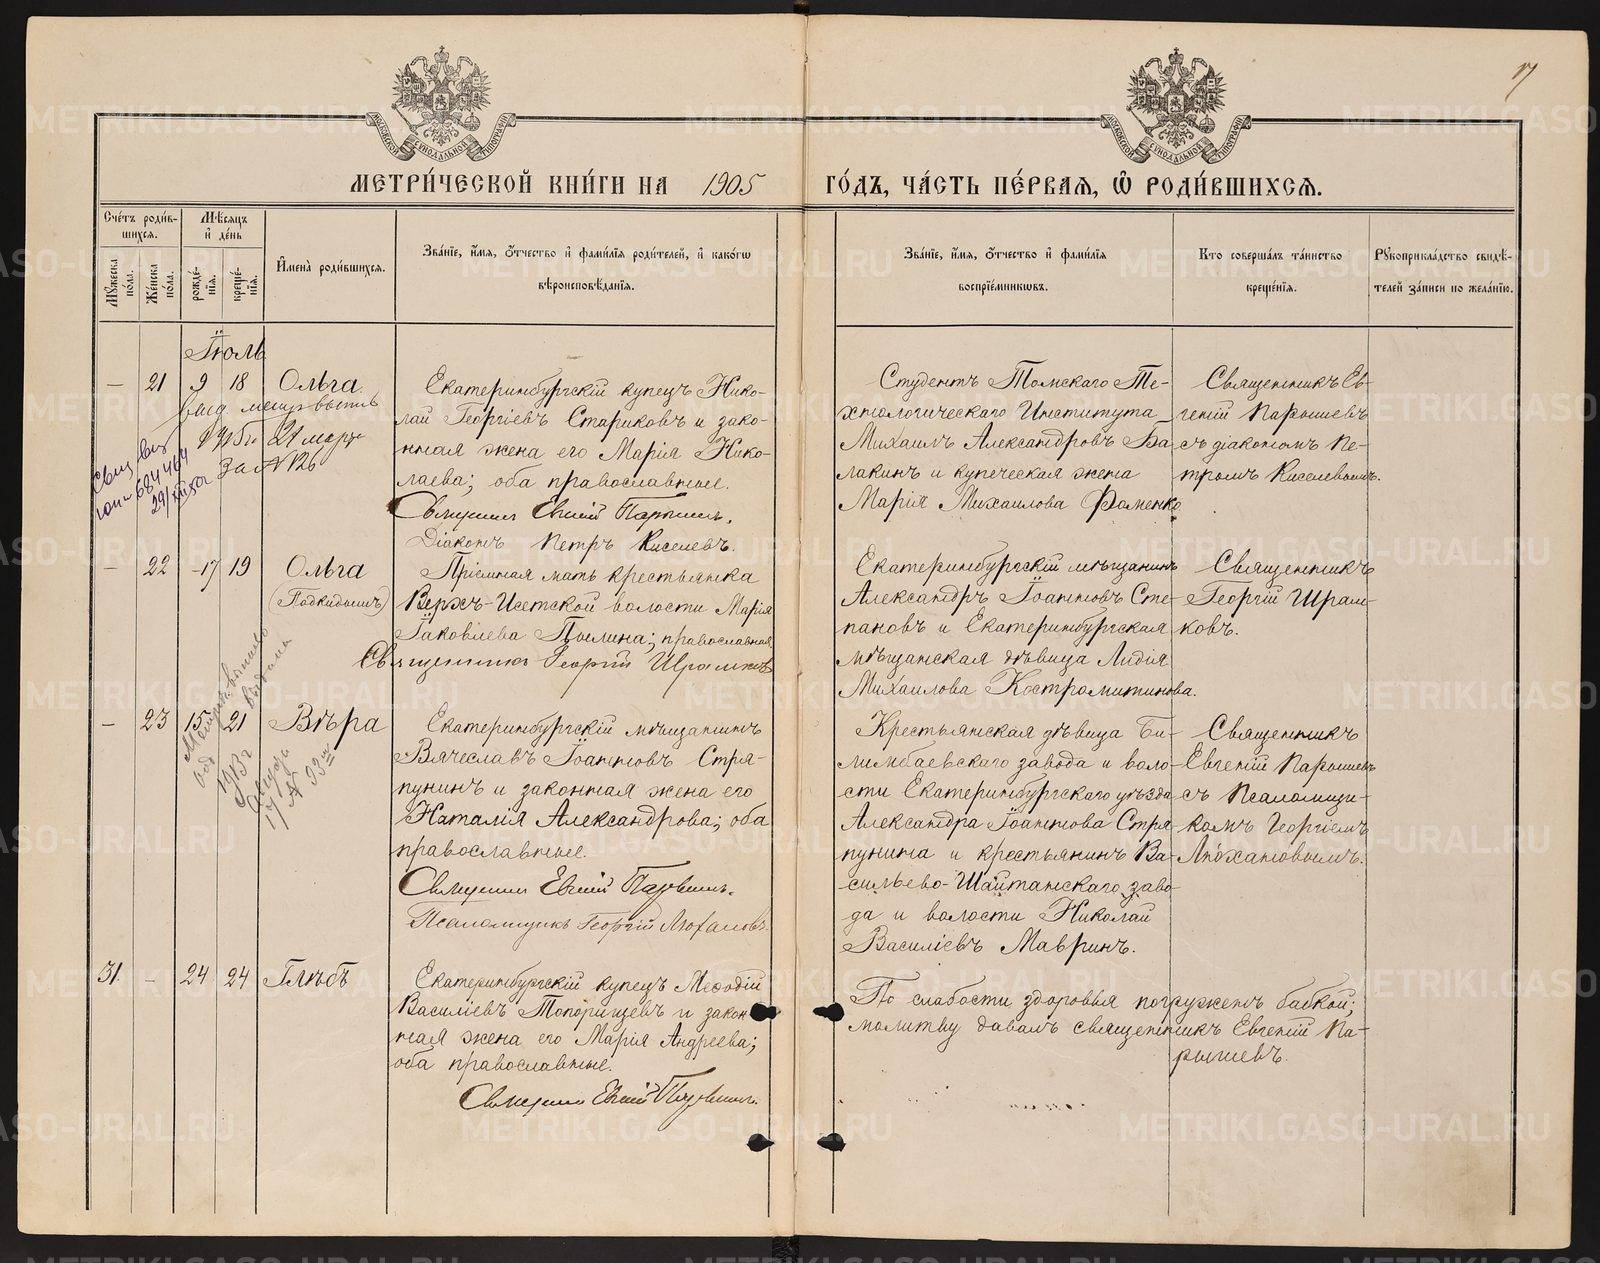 17
МЕТРИ́ЧЕСКОЙ КНИ́ГИ НА 1905 ГО́ДЪ, ЧА́СТЬ ПЕ́РВАЯ, Ѡ РОДИ́ВШИХСЯ.
Сче́тъ роди́в-
шихся.
Мѣ́сяцъ
и де́нь
Мꙋжеска по́ла.
Же́нска по́ла.
рожде́-
нїя.
креще́-
нїя.
И҆мена̀ роди́вшихся.
Зва́нїе, и҆́мя, ѻ҆́тчество и҆ фами́лїя роди́телей, и҆ како́гѡ
вѣроисповѣ́данїя.
Зва́нїе, и҆́мя, ѻ҆́тчество и҆ фами́лїя
воспрїе́мниковъ.
Кто̀ соверша́лъ та́инство
креще́нїя.
Рꙋкоприкла́дство свидѣ́-
телей за́писи по жела́нїю.
Іюль
— 21 9 18 Ольга
Екатеринбургскій купецъ Нико-
лай Георгіевъ Стариковъ и зако-
нная жена его Марія Нико-
лаева; оба православные.
Священникъ Евгеній Парышевъ.
Діаконъ Петръ Киселевъ.
Студентъ Томскаго Те-
хнологическаго Института
Михаилъ Александровъ Ба-
лакинъ и купеческая жена
Марія Михаилова Фоменко
Священникъ Ев-
геній Парышевъ
съ діакономъ Пе-
тромъ Киселевымъ.
21 марта
За № 126
684464
— 22 17 19 Ольга
(Подкидышъ)
Пріемная мать крестьянка
Верхъ-Исетской волости Марія
Іаковлева Пылина; православная
Священникъ Георгій Шрамковъ
Екатеринбургскій мѣщанинъ
Александръ Іоанновъ Сте-
пановъ и Екатеринбургская
мѣщанская дѣвица Лидія
Михаилова Костромитинова.
Священникъ
Георгій Шрам-
ковъ.
— 23 15 21 Вѣра
Екатеринбургскій мѣщанинъ
Вячеславъ Іоанновъ Стря-
пунинъ и законная жена его
Наталія Александрова; оба
православные.
Священникъ Евгеній Парышевъ.
Псаломщикъ Георгій Люхановъ.
Крестьянская дѣвица Би-
лимбаевскаго завода и воло-
сти Екатеринбургскаго уѣзда
Александра Іоаннова Стря-
пунина и крестьянинъ Ва-
сильево-Шайтанскаго заво-
да и волости Николай
Василіевъ Мавринъ.
Священникъ
Евгеній Парышевъ
съ Псаломщи-
комъ Георгіемъ
Люхановымъ.
31. — 24 24 Глѣбъ
Екатеринбургскій купецъ Меѳодій
Василіевъ Топорищевъ и закон-
ная жена его Марія Андреева;
оба православные.
Священникъ Евгеній Парышевъ.
По слабости здоровья погруженъ бабкой;
молитву давалъ священникъ Евгеній Па-
рышевъ.